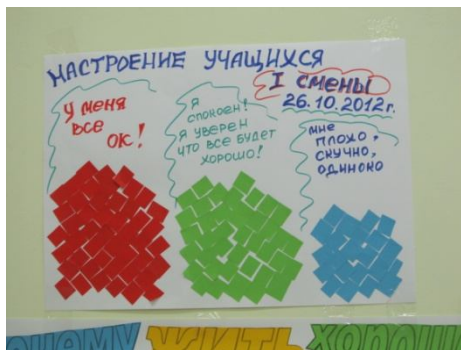 НАСТРОЕНИЕ УЧАЩИХСЯ
I СМЕНЫ
26.10.2012г.
У МЕНЯ
ВСЕ
ОК!
Я
СПОКОЕН!
Я УВЕРЕН
ЧТО ВСЕ БУДЕТ
ХОРОШО!
МНЕ
ПЛОХО,
СКУЧНО,
ОДИНОКО
ЖИТЬ